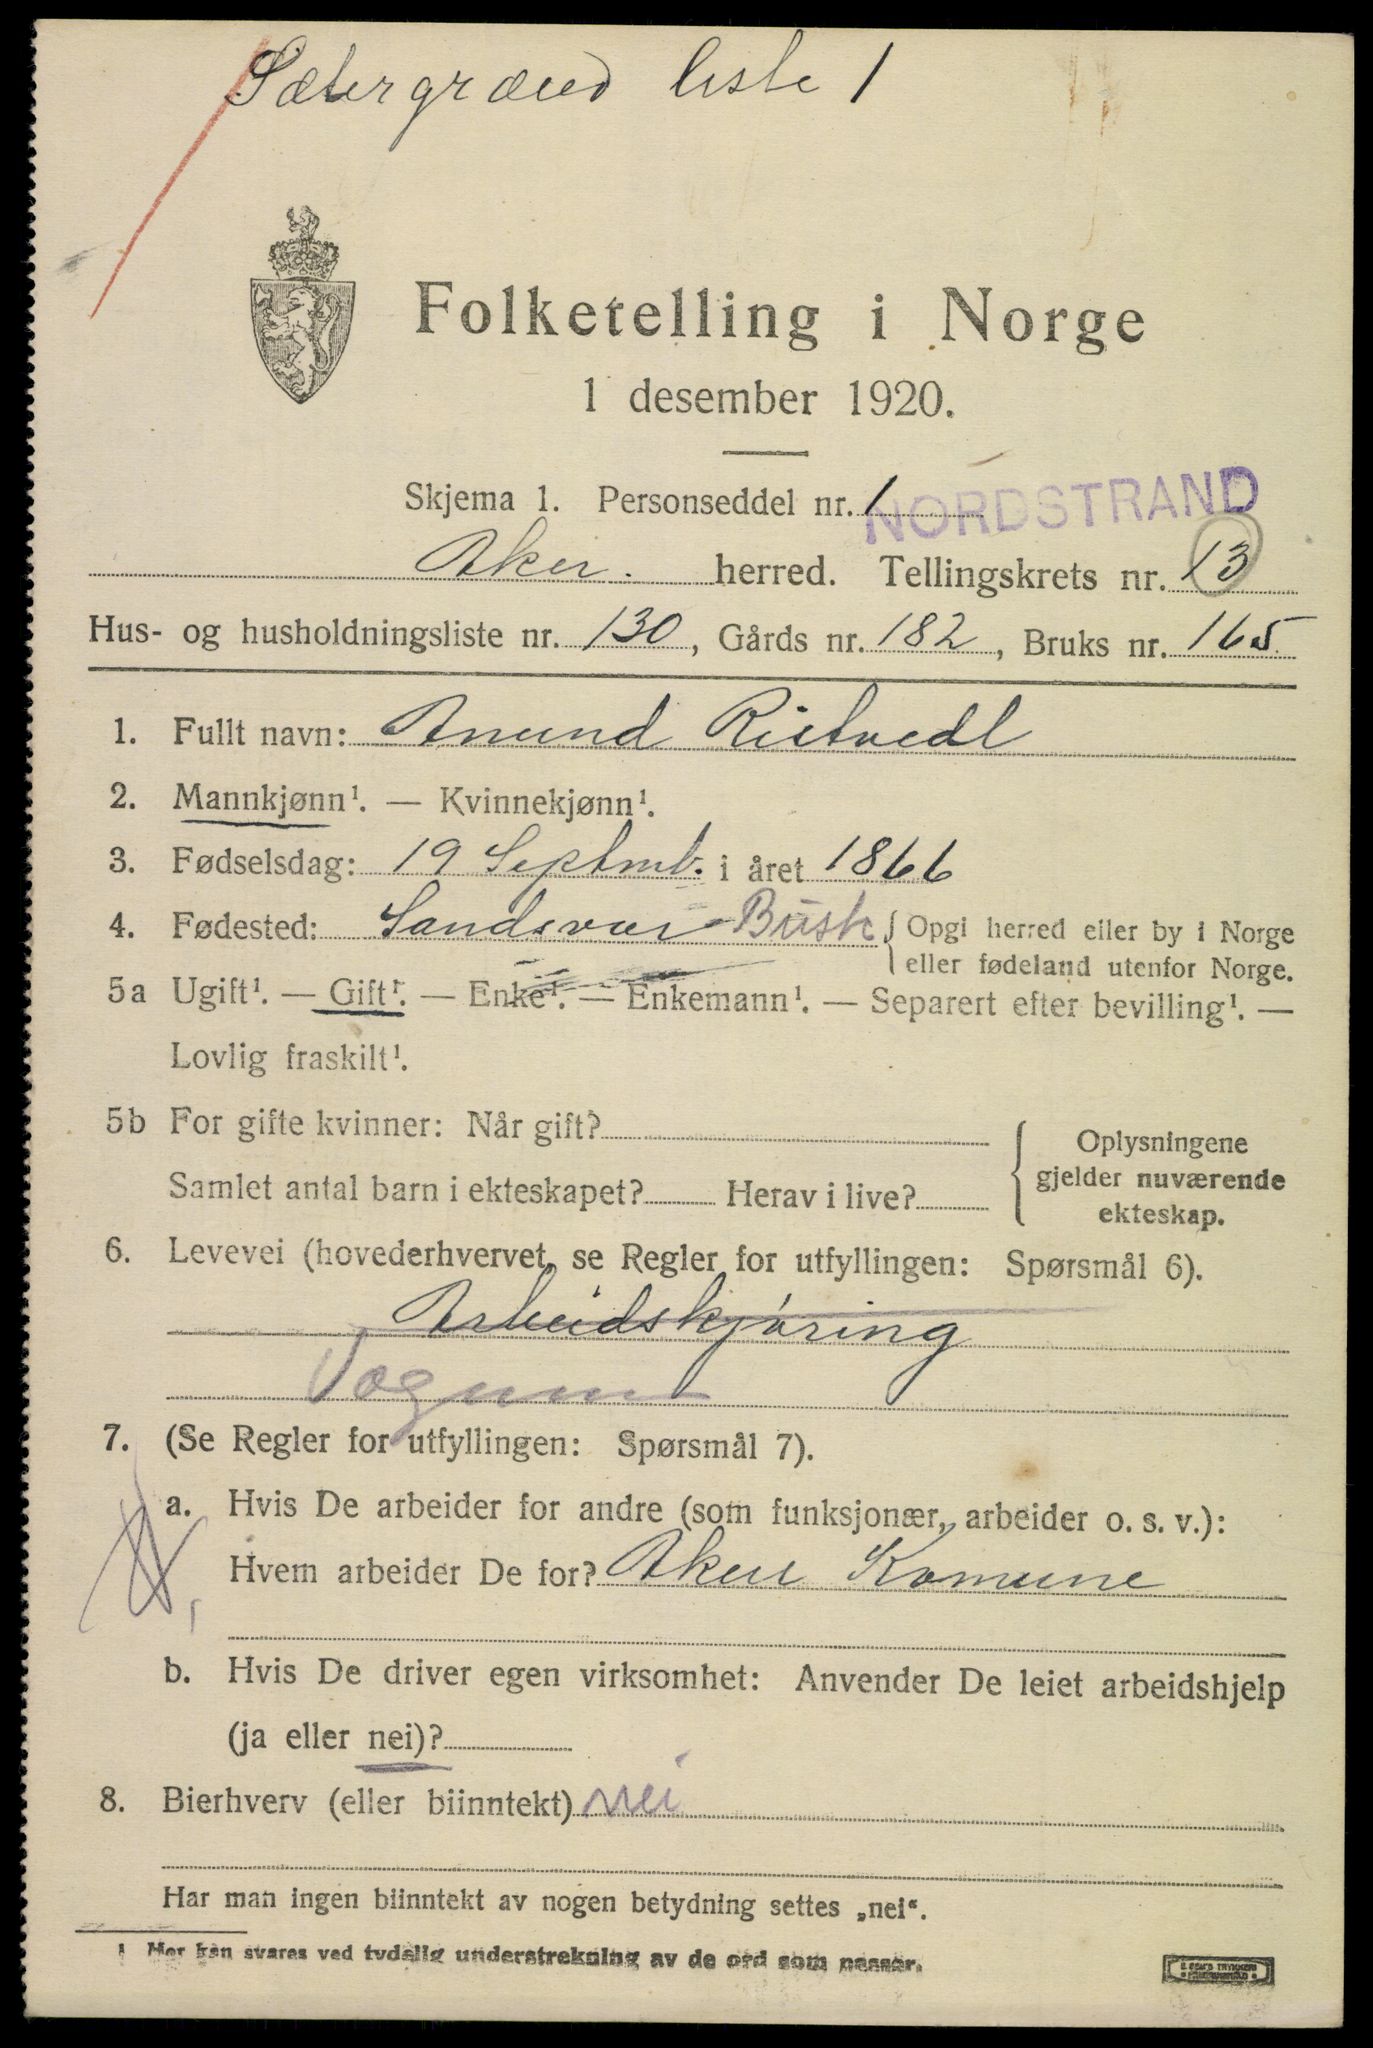 Sætergrænd liste 1
Folketelling i Norge
1 desember 1920.
Skjema 1. Personseddel nr. 1
NORDSTRAND
Aker. herred. Tellingskrets nr. 13
Hus- og husholdningsliste nr. 130, Gårds nr. 182, Bruks nr. 165
1. Fullt navn: Amund Ristvedt
2. Mannkjønn¹. — Kvinnekjønn¹.
3. Fødselsdag: 19 Septmb. i året 1866
4. Fødested: Sandsvær Busk { Opgi herred eller by i Norge
eller fødeland utenfor Norge.
5a Ugift¹. — Gift¹. — Enke¹. — Enkemann¹. — Separert efter bevilling¹. —
Lovlig fraskilt¹.
5b For gifte kvinner: Når gift?
Samlet antal barn i ekteskapet? Herav i live?
Oplysningene
gjelder nuværende
ekteskap.
6. Levevei (hovederhvervet, se Regler for utfyllingen: Spørsmål 6).
Arbeidskjøring
7. (Se Regler for utfyllingen: Spørsmål 7).
a. Hvis De arbeider for andre (som funksjonær, arbeider o. s. v.):
Hvem arbeider De for? Aker Komune
b. Hvis De driver egen virksomhet: Anvender De leiet arbeidshjelp
(ja eller nei)?
8. Bierhverv (eller biinntekt) nei
Har man ingen biinntekt av nogen betydning settes „nei“.
¹ Her kan svares ved tydelig understrekning av de ord som passer.